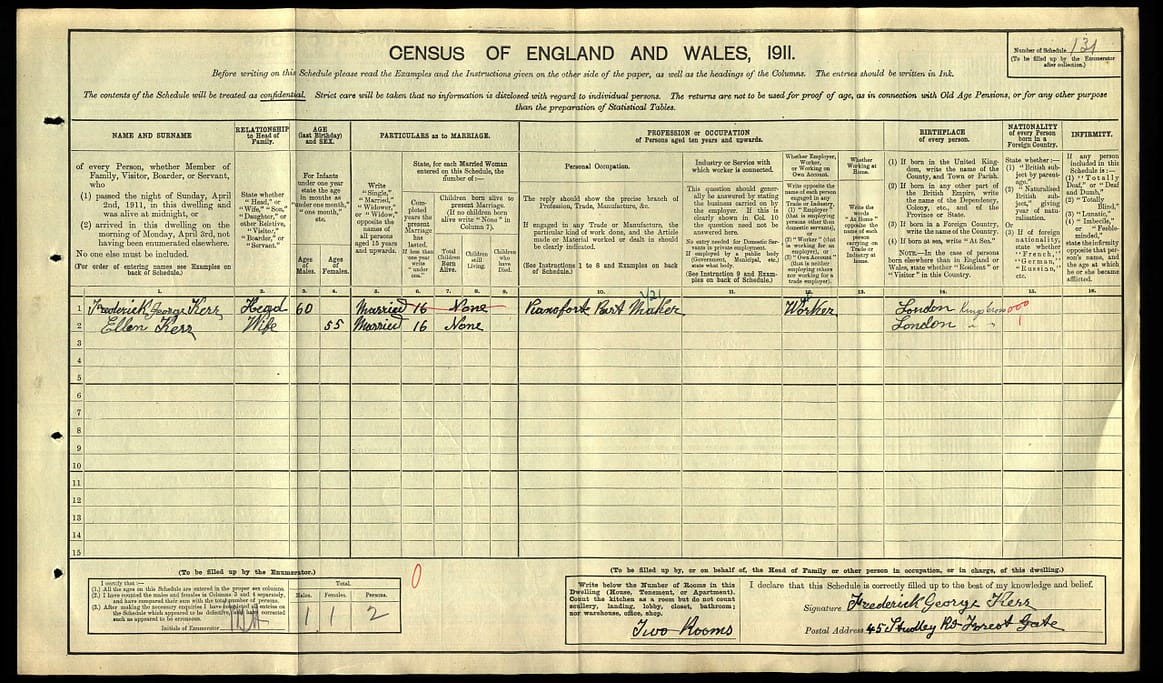 CENSUS OF ENGLAND AND WALES, 1911.
Number of Schedule 131
(To be filled up by the Enumerator
after collection.)
Before writing on this Schedule please read the Examples and the Instructions given on the other side of the paper, as well as the headings of the Columns. The entries should be written in Ink.
The contents of the Schedule will be treated as confidential. Strict care will be taken that no information is disclosed with regard to individual persons. The returns are not to be used for proof of age, as in connection with Old Age Pensions, or for any other purpose
than the preparation of Statistical Tables.
NAME AND SURNAME
of every Person, whether Member of
Family, Visitor, Boarder, or Servant,
who
(1) passed the night of Sunday, April
2nd, 1911, in this dwelling and
was alive at midnight, or
(2) arrived in this dwelling on the
morning of Monday, April 3rd, not
having been enumerated elsewhere.
No one else must be included.
(For order of entering names see Examples on
back of Schedule.)
RELATIONSHIP
to Head of
Family.
State whether
"Head," or
"Wife," "Son,"
"Daughter," or
other Relative,
"Visitor,"
"Boarder," or
"Servant."
AGE
(last Birthday)
and SEX.
For Infants
under one year
state the age
in months as
"under one month,"
"one month,"
etc.
Ages
of
Males.
Ages
of
Females.
PARTICULARS as to MARRIAGE.
Write
"Single,"
"Married,"
"Widower,"
or "Widow,"
opposite the
names of
all persons
aged 15 years
and upwards.
State, for each Married Woman
entered on this Schedule, the
number of:—
Completed
years the
present
Marriage
has
lasted.
If less than
one year
write
"under
one."
Children born alive to
present Marriage.
(If no children born
alive write "None" in
Column 7).
Total
Children
Born
Alive.
Children
still
Living.
Children
who
have
Died.
PROFESSION or OCCUPATION
of Persons aged ten years and upwards.
Personal Occupation.
The reply should show the precise branch of
Profession, Trade, Manufacture, &c.
If engaged in any Trade or Manufacture, the
particular kind of work done, and the Article
made or Material worked or dealt in should
be clearly indicated.
(See Instructions 1 to 8 and Examples on back
of Schedule.)
Industry or Service with
which worker is connected.
This question should generally
be answered by stating
the business carried on by
the employer. If this is
clearly shown in Col. 10
the question need not be
answered here.
No entry needed for Domestic Servants
in private employment.
If employed by a public body
(Government, Municipal, etc.)
state what body.
(See Instruction 9 and Examples
on back of Schedule.)
Whether Employer,
Worker,
or Working on
Own Account.
Write opposite the
name of each person
engaged in any
Trade or Industry,
(1) "Employer"
(that is employing
persons other than
domestic servants),
or
(2) "Worker" (that
is working for an
employer), or
(3) "Own Account"
(that is neither
employing others
nor working for a
trade employer).
Whether
Working at
Home.
Write the
words
"At Home"
opposite the
name of each
person
carrying on
Trade or
Industry at
home.
BIRTHPLACE
of every person.
(1) If born in the United Kingdom,
write the name of the
County, and Town or Parish.
(2) If born in any other part of
the British Empire, write
the name of the Dependency,
Colony, etc., and of the
Province or State.
(3) If born in a Foreign Country,
write the name of the Country.
(4) If born at sea, write "At Sea."
NOTE.—In the case of persons
born elsewhere than in England or
Wales, state whether "Resident" or
"Visitor" in this Country.
NATIONALITY
of every Person
born in a
Foreign Country.
State whether:—
(1) "British subject
by parentage,"
(2) "Naturalised
British subject,"
giving
year of naturalisation.
Or
(3) If of foreign
nationality,
state whether
"French,"
"German,"
"Russian,"
etc.
INFIRMITY.
If any person
included in this
Schedule is:—
(1) "Totally
Deaf," or "Deaf
and Dumb,"
(2) "Totally
Blind,"
(3) "Lunatic,"
(4) "Imbecile,"
or "Feeble-minded,"
state the infirmity
opposite that person's
name, and
the age at which
he or she became
afflicted.
1. 2. 3. 4. 5. 6. 7. 8. 9. 10. 11. 12. 13. 14. 15. 16.
1 Frederick George Kerr Head 60 Married 16 None Pianoforte Part Maker Worker London
2 Ellen Kerr Wife 55 Married 16 None London " "
3
4
5
6
7
8
9
10
11
12
13
14
15
(To be filled up by the Enumerator.)
I certify that:—
(1.) All the ages on this Schedule are entered in the proper sex columns.
(2.) I have counted the males and females in Columns 3 and 4 separately,
and have compared their sum with the total number of persons.
(3.) After making the necessary enquiries I have completed all entries on
the Schedule which appeared to be defective, and have corrected
such as appeared to be erroneous.
Initials of Enumerator
Total.
Males. Females. Persons.
1 1 2
0
(To be filled up by, or on behalf of, the Head of Family or other person in occupation, or in charge, of this dwelling.)
Write below the Number of Rooms in this
Dwelling (House, Tenement, or Apartment).
Count the kitchen as a room but do not count
scullery, landing, lobby, closet, bathroom;
nor warehouse, office, shop.
Two Rooms
I declare that this Schedule is correctly filled up to the best of my knowledge and belief.
Signature Frederick George Kerr
Postal Address 45 Studley Rd Forest Gate